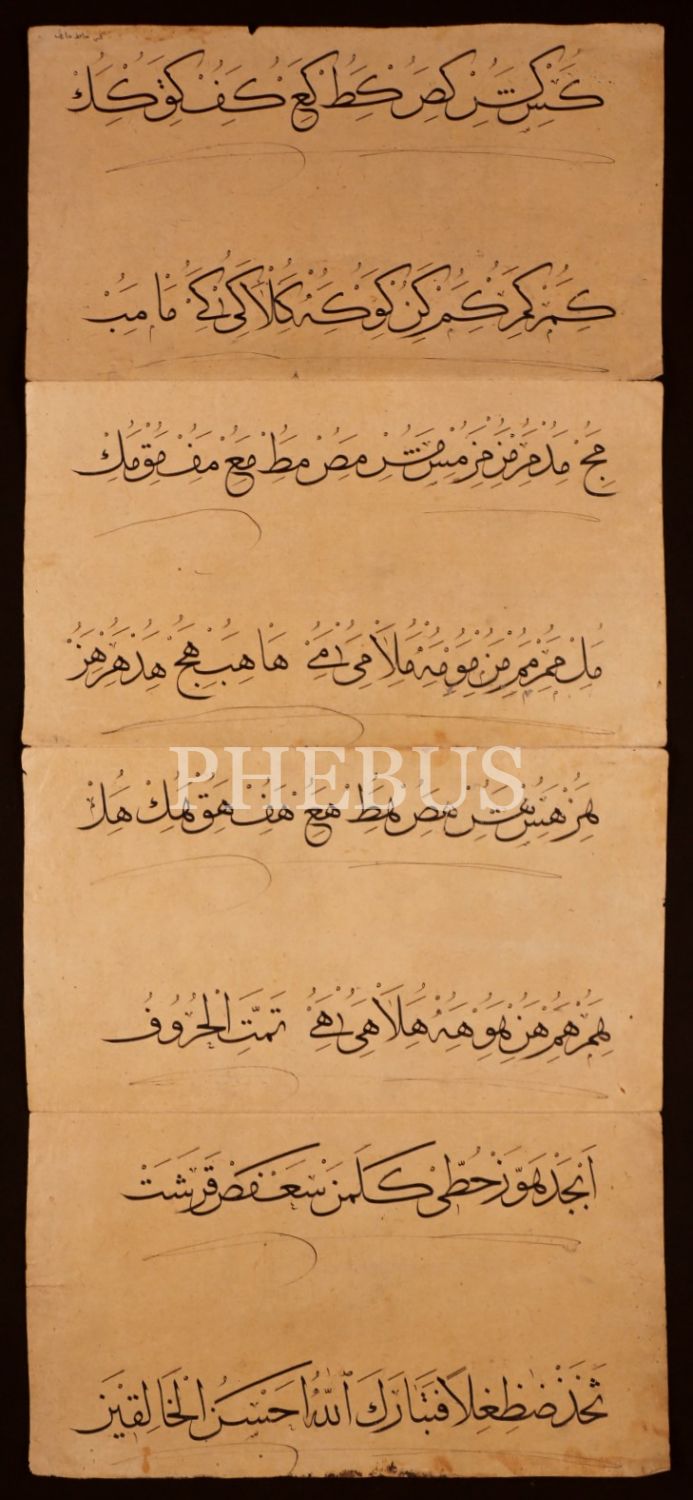 كس كش كص كط كع كف كق كك
كم كم كم كن كو كه كلا كى كے ما مب
مج مد مر مر مر مس مش مص مط مع مف مق مك
مل مم مم من مو مه ملا مى مے ها هب هج هد هر هر
PHEBUS
هر هس هش هص هط هع هف هق هك هل
هم هم هن هو هه هلا هى هے تَمَّتِ الْحُرُوفُ
اَبْجَدْ هَوَّزْ حُطِّى كَلَمَنْ سَعَفَصْ قَرَشَتْ
ثَخَذْ ضَظِغِلَا فَتَبَارَكَ اللّٰهُ اَحْسَنُ الْخَالِقِينَ